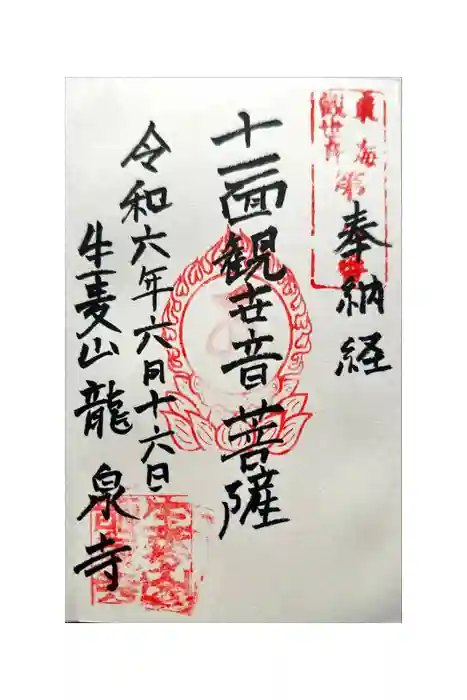 奉納経
十一面観世音菩薩
令和六年六月十六日
牛麦山龍泉寺